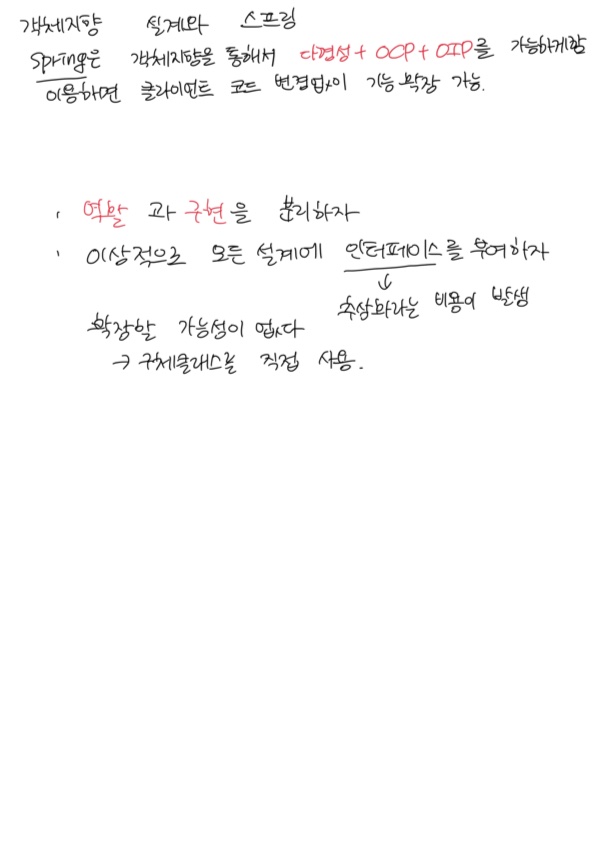 객체지향 설계와 스프링
Spring은 객체지향을 통해서 다형성 + OCP + DIP를 가능하게함
이용하면 클라이언트 코드 변경없이 기능 확장 가능.
· 역할 과 구현을 분리하자
· 이상적으로 모든 설계에 인터페이스를 부여하자
↓
추상화라는 비용이 발생
확장할 가능성이 없다
→ 구체클래스를 직접 사용.